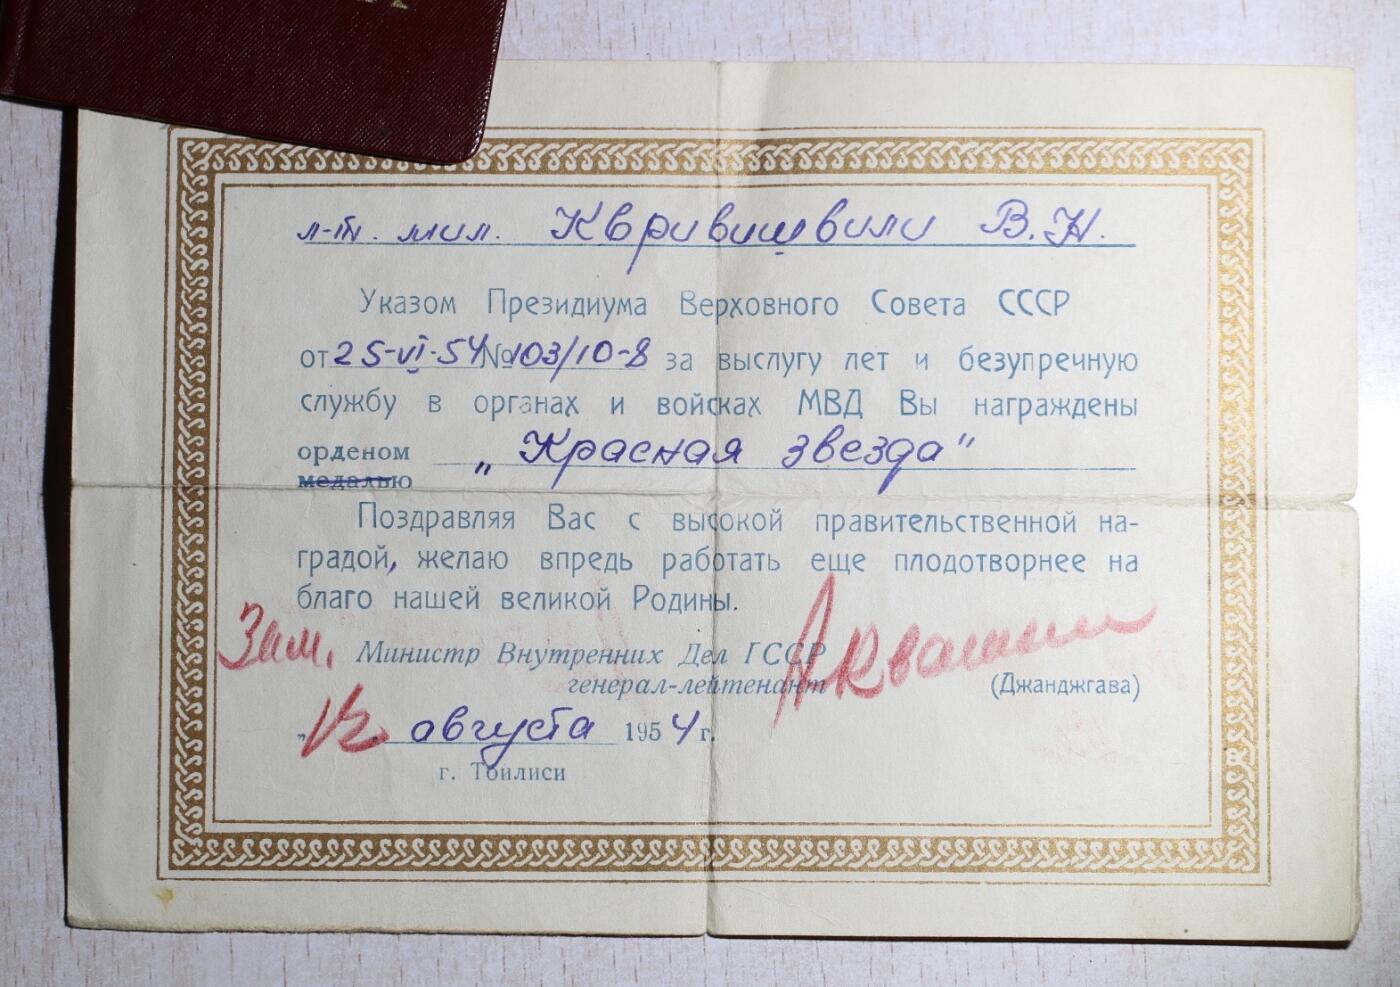 л-т. мил. Квривишвили В.Н.
Указом Президиума Верховного Совета СССР
от 25-VI-54 № 103/10-8 за выслугу лет и безупречную
службу в органах и войсках МВД Вы награждены
орденом „Красная звезда"
медалью
Поздравляя Вас с высокой правительственной на-
градой, желаю впредь работать еще плодотворнее на
благо нашей великой Родины.
Зам. Министр Внутренних Дел ГССР
генерал-лейтенант (Джанджгава)
августа 1954 г.
г. Тбилиси